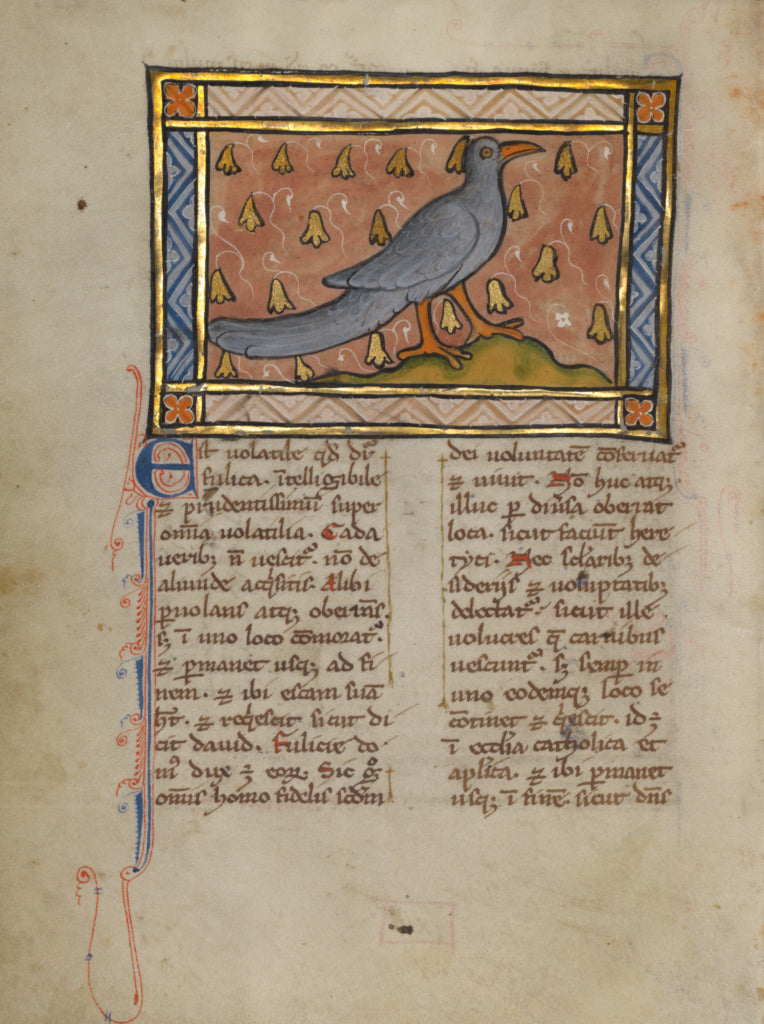 Est uolatile qd̄ dr̄
fulica. ītelligibile
⁊ prudentissimū super
omīa uolatilia. Cada
uerib; n̄ uescit᷑. nō de
aliunde acq̄sitis. Alibi
ꝑuolans atq; oberrās.
s; ī uno loco cōmorat᷑.
⁊ ꝑmanet usq; ad fi
nem. ⁊ ibi escam suā
h̄t. ⁊ req̄escit sicut di
cit dauid. Fulicie do
m᷒ dux ē eoꝝ. Sic gͦ
omnis homo fidelis scd̄m
dei uoluntatē cōseruat᷑
⁊ uiuit. Nō huc atq;
illuc ꝑ diūsa oberrat
loca. sicut faciūt here
tyci. Nec sclārib; de
siderijs ⁊ uoluptatib;
delectat᷑. sicut ille
uolucres q̄ carnibus
uescunt᷑. s; semꝑ in
uno eodemq; loco se
cōtinet ⁊ q̄escit. id ē
ī eccl̄ia catholica et
apl̄ica. ⁊ ibi ꝑmanet
usq; ī finē. sicut dn̄s